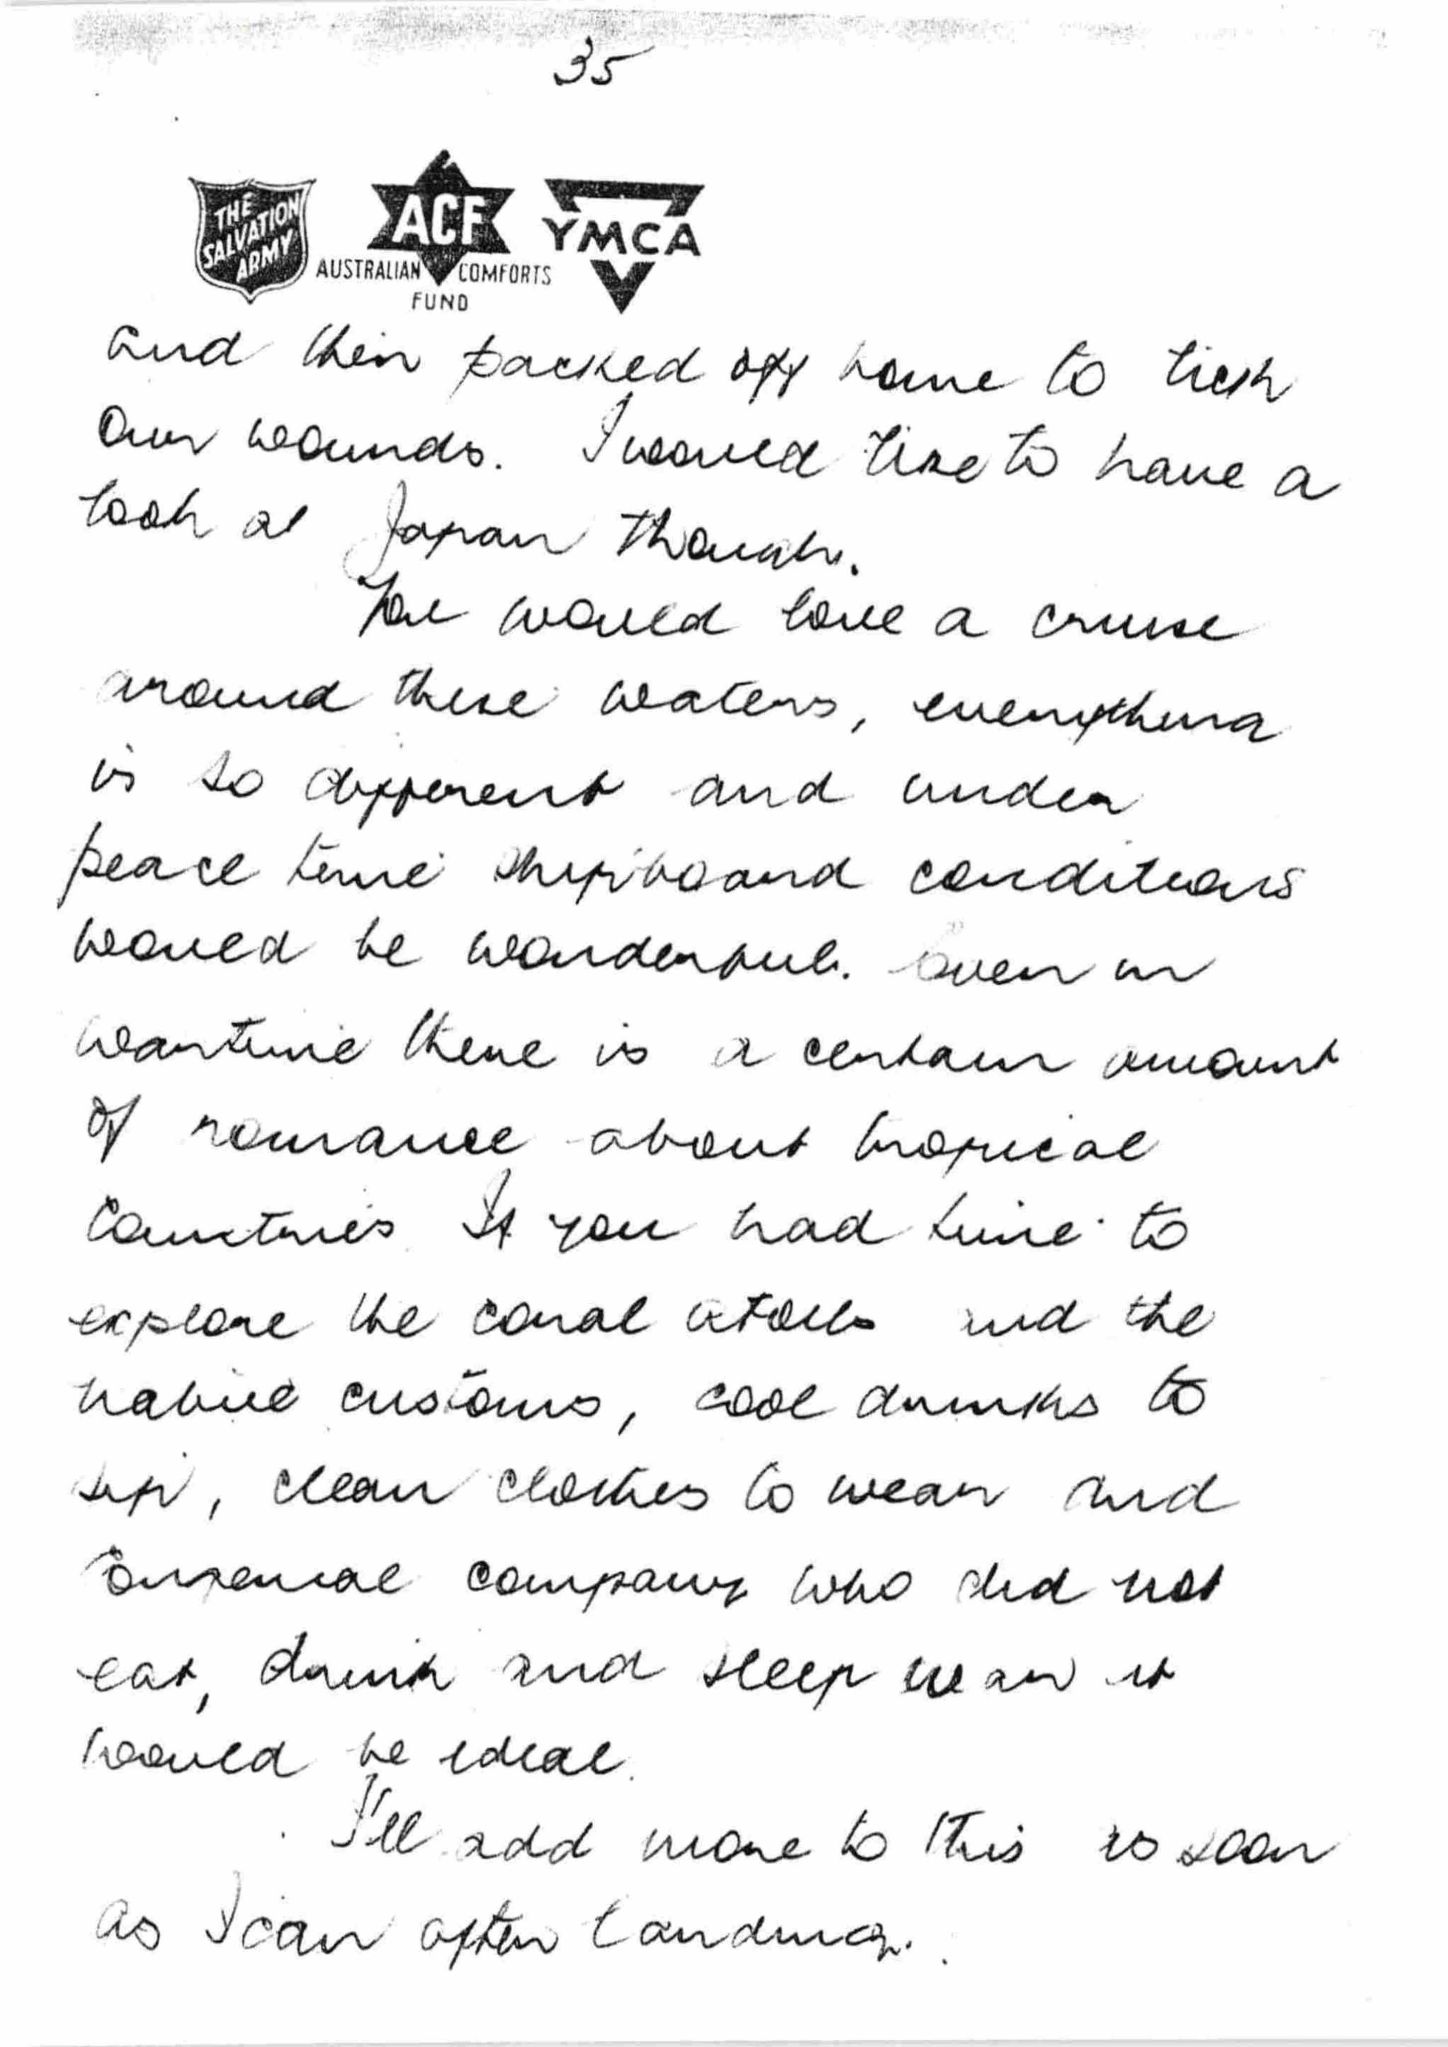 35
THE SALVATION ARMY
ACF
AUSTRALIAN COMFORTS FUND
YMCA
and then packed off home to lick
our wounds. I would like to have a
look at Japan though.
You would love a cruise
around these waters, everything
is so different and under
peace time shipboard conditions
would be wonderful. Even in
wartime there is a certain amount
of romance about tropical
countries. If you had time to
explore the coral atolls and the
native customs, cool drinks to
sip, clean clothes to wear and
congenial company who did not
eat, drink and sleep war it
would be ideal.
I'll add more to this as soon
as I can after landing.